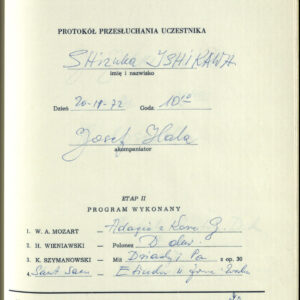 PROTOKÓŁ PRZESŁUCHANIA UCZESTNIKA
Shizuka ISHIKAWA
imię i nazwisko
Dzień 20-11-72 Godz. 10¹⁰
Josef Hala
akompaniator
ETAP II
PROGRAM WYKONANY
1. W. A. MOZART — Adagio z Konc. G
2. H. WIENIAWSKI — Polonez D dur
3. K. SZYMANOWSKI — Mit Dryady i Pan z op. 30
4. Saint Saens — Etiuda w formie Walca